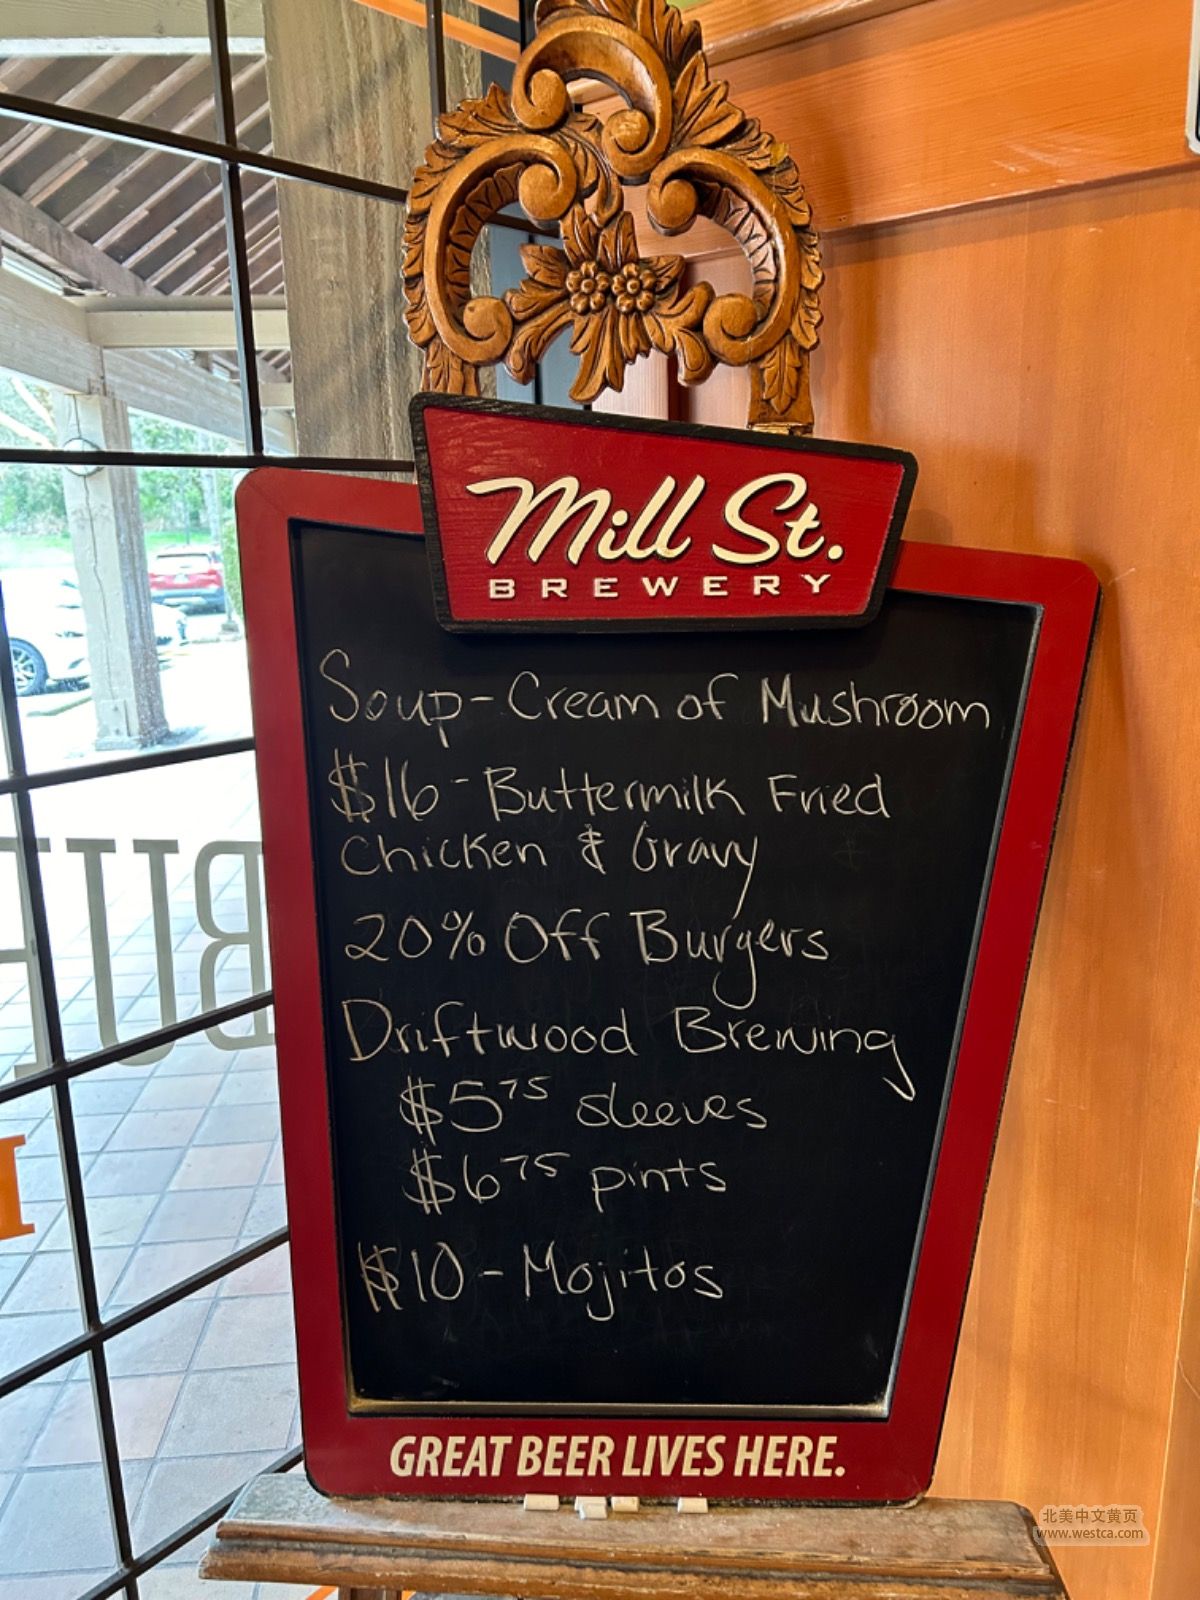 Mill St.
BREWERY
Soup - Cream of Mushroom
$16 - Buttermilk Fried
Chicken & Gravy
20% Off Burgers
Driftwood Brewing
$5 75 sleeves
$6 75 pints
$10 - Mojitos
GREAT BEER LIVES HERE.
北美中文黄页
www.westca.com